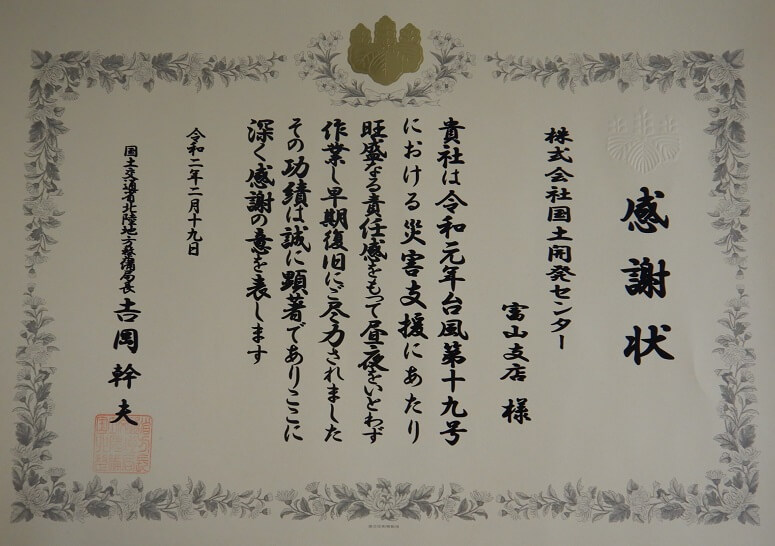 感謝状
株式会社国土開発センター
富山支店 様
貴社は令和元年台風第十九号
における災害支援にあたり
旺盛なる責任感をもって昼夜をいとわず
作業し早期復旧にご尽力されました
その功績は誠に顕著でありここに
深く感謝の意を表します
令和二年二月十九日
国土交通省北陸地方整備局長 吉岡幹夫